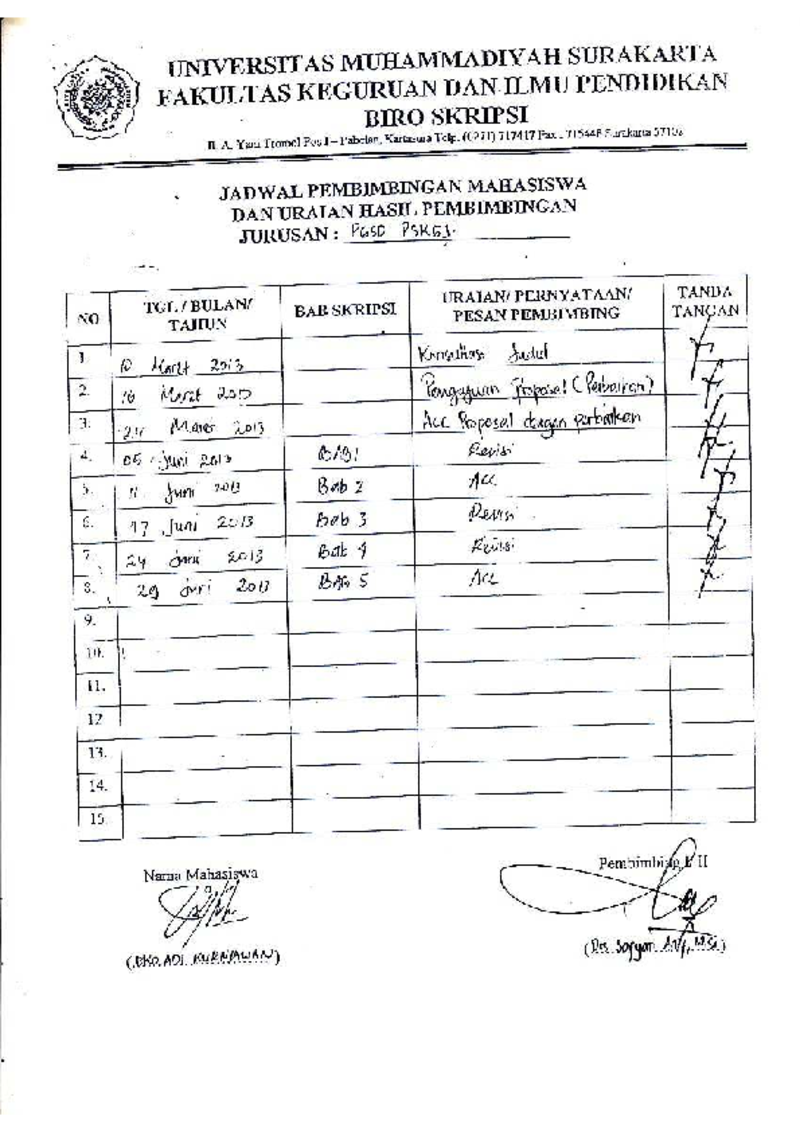 UNIVERSITAS MUHAMMADIYAH SURAKARTA
FAKULTAS KEGURUAN DAN ILMU PENDIDIKAN
BIRO SKRIPSI
Jl. A. Yani Tromol Pos I – Pabelan, Kartasura Telp. (0271) 717417 Fax : 715448 Surakarta 57102
JADWAL PEMBIMBINGAN MAHASISWA
DAN URAIAN HASIL PEMBIMBINGAN
JURUSAN : PGSD PSKGJ
NO TGL / BULAN/ TAHUN BAB SKRIPSI URAIAN/ PERNYATAAN/ PESAN PEMBIMBING TANDA TANGAN
1. 10 Maret 2013 Konsultasi Judul
2. 16 Maret 2013 Pengajuan Proposal (Perbaikan)
3. 24 Maret 2013 Acc Proposal dengan perbaikan
4. 05 Juni 2013 BAB 1 Revisi
5. 11 Juni 2013 Bab 2 Acc
6. 17 Juni 2013 Bab 3 Revisi
7. 24 Juni 2013 Bab 4 Revisi
8. 29 Juni 2013 Bab 5 Acc
9.
10.
11.
12
13.
14.
15.
Nama Mahasiswa Pembimbing I/ II
(.EKO.ADI.KURNIAWAN) (Drs. Sofyan M.Si)